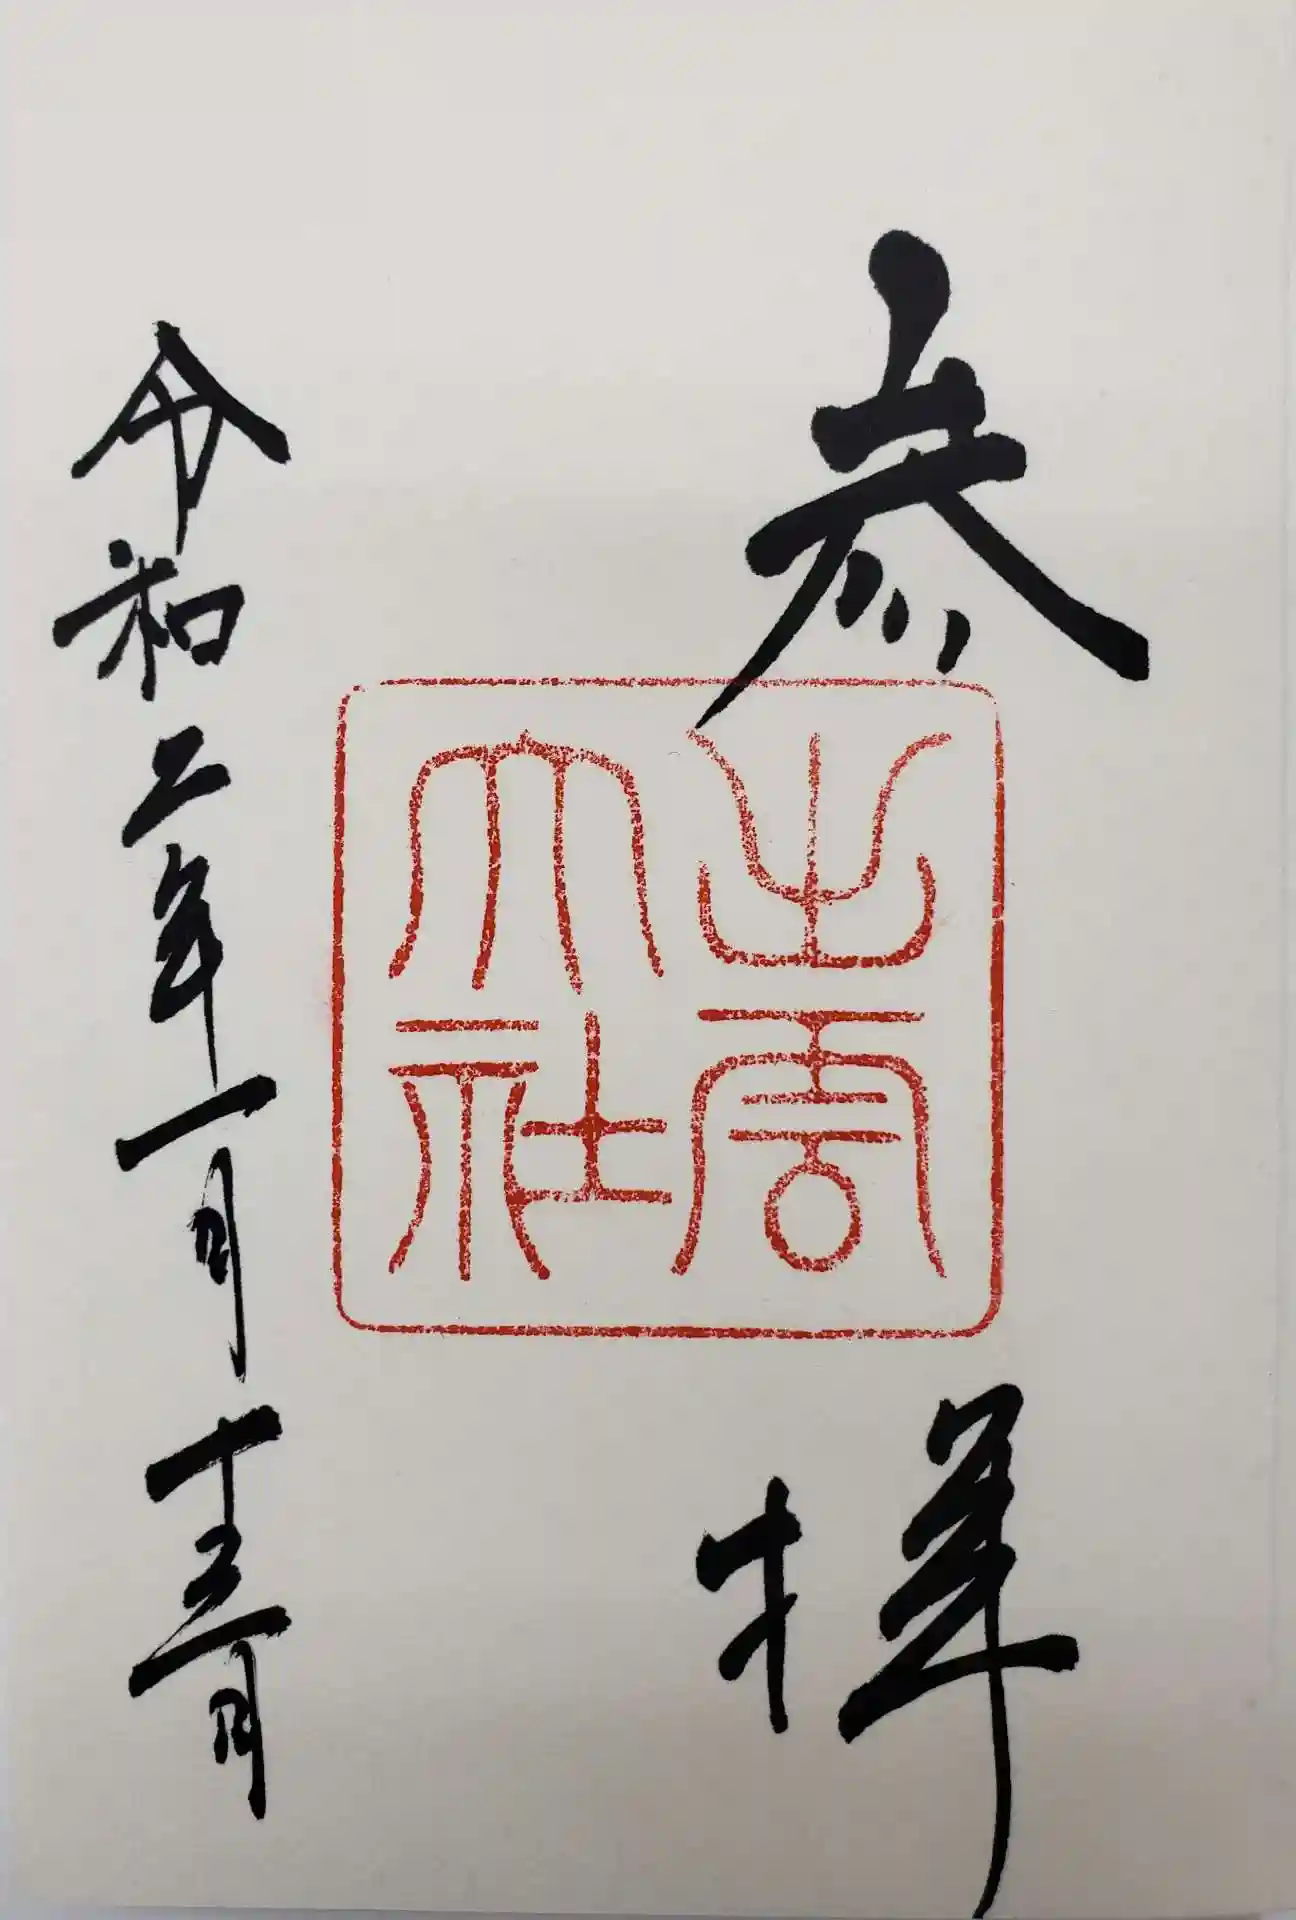 参拝
出雲
大社
令和二年一月十三日